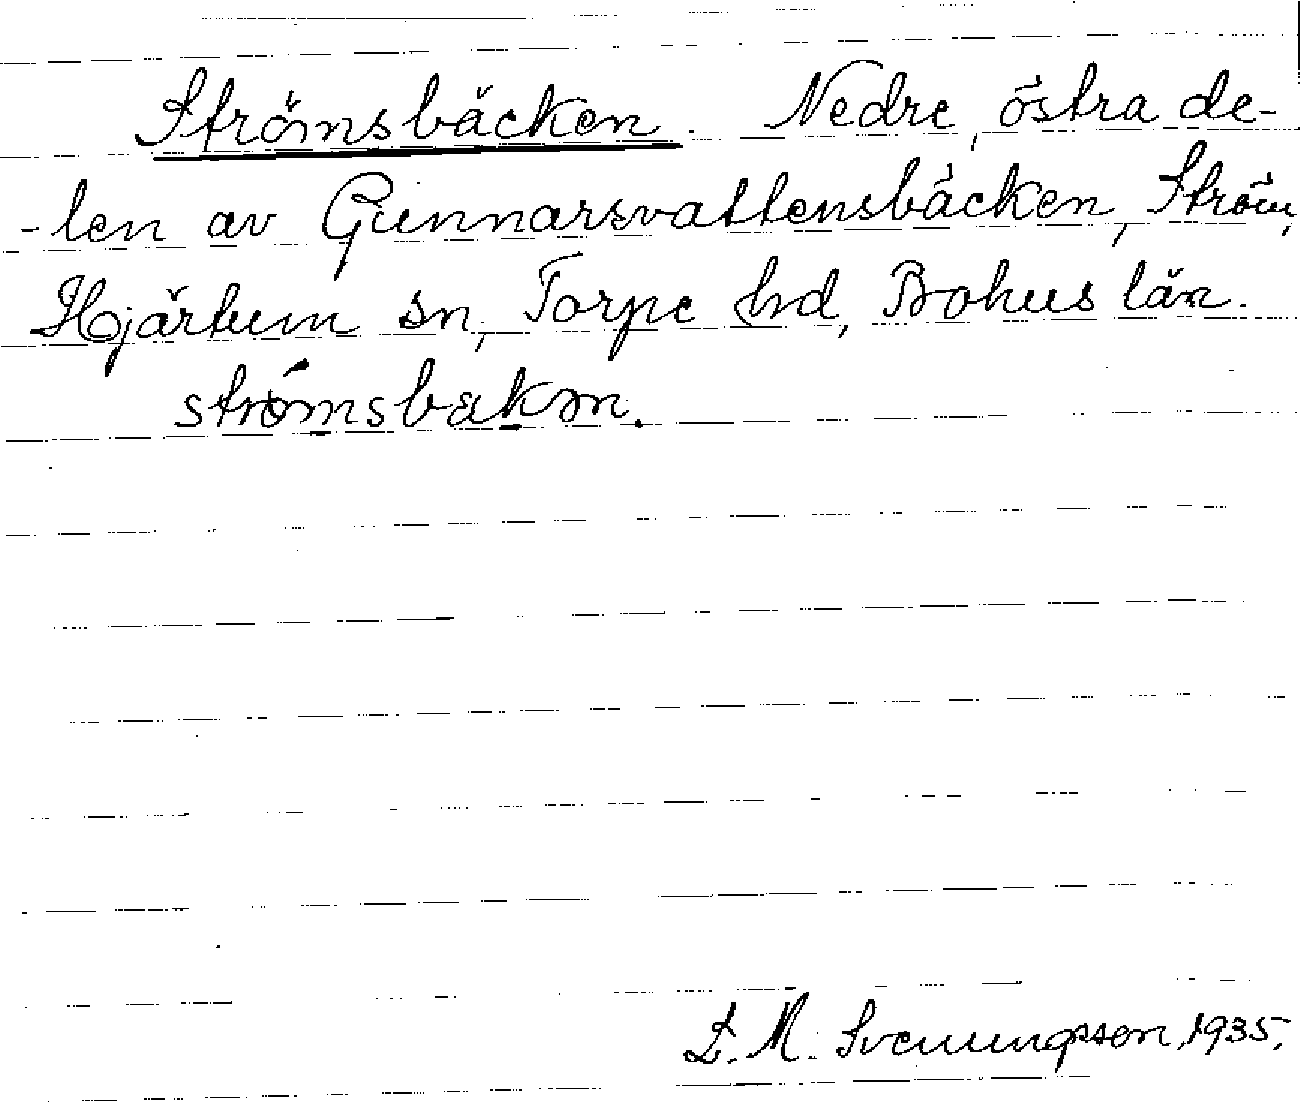 Strömsbäcken. Nedre, östra de-
-len av Gunnarsvattensbäcken, Ström,
Hjärtum sn, Torpe hd, Bohus län.
strömsbakɘn.
L. M. Svenungsson, 1935.